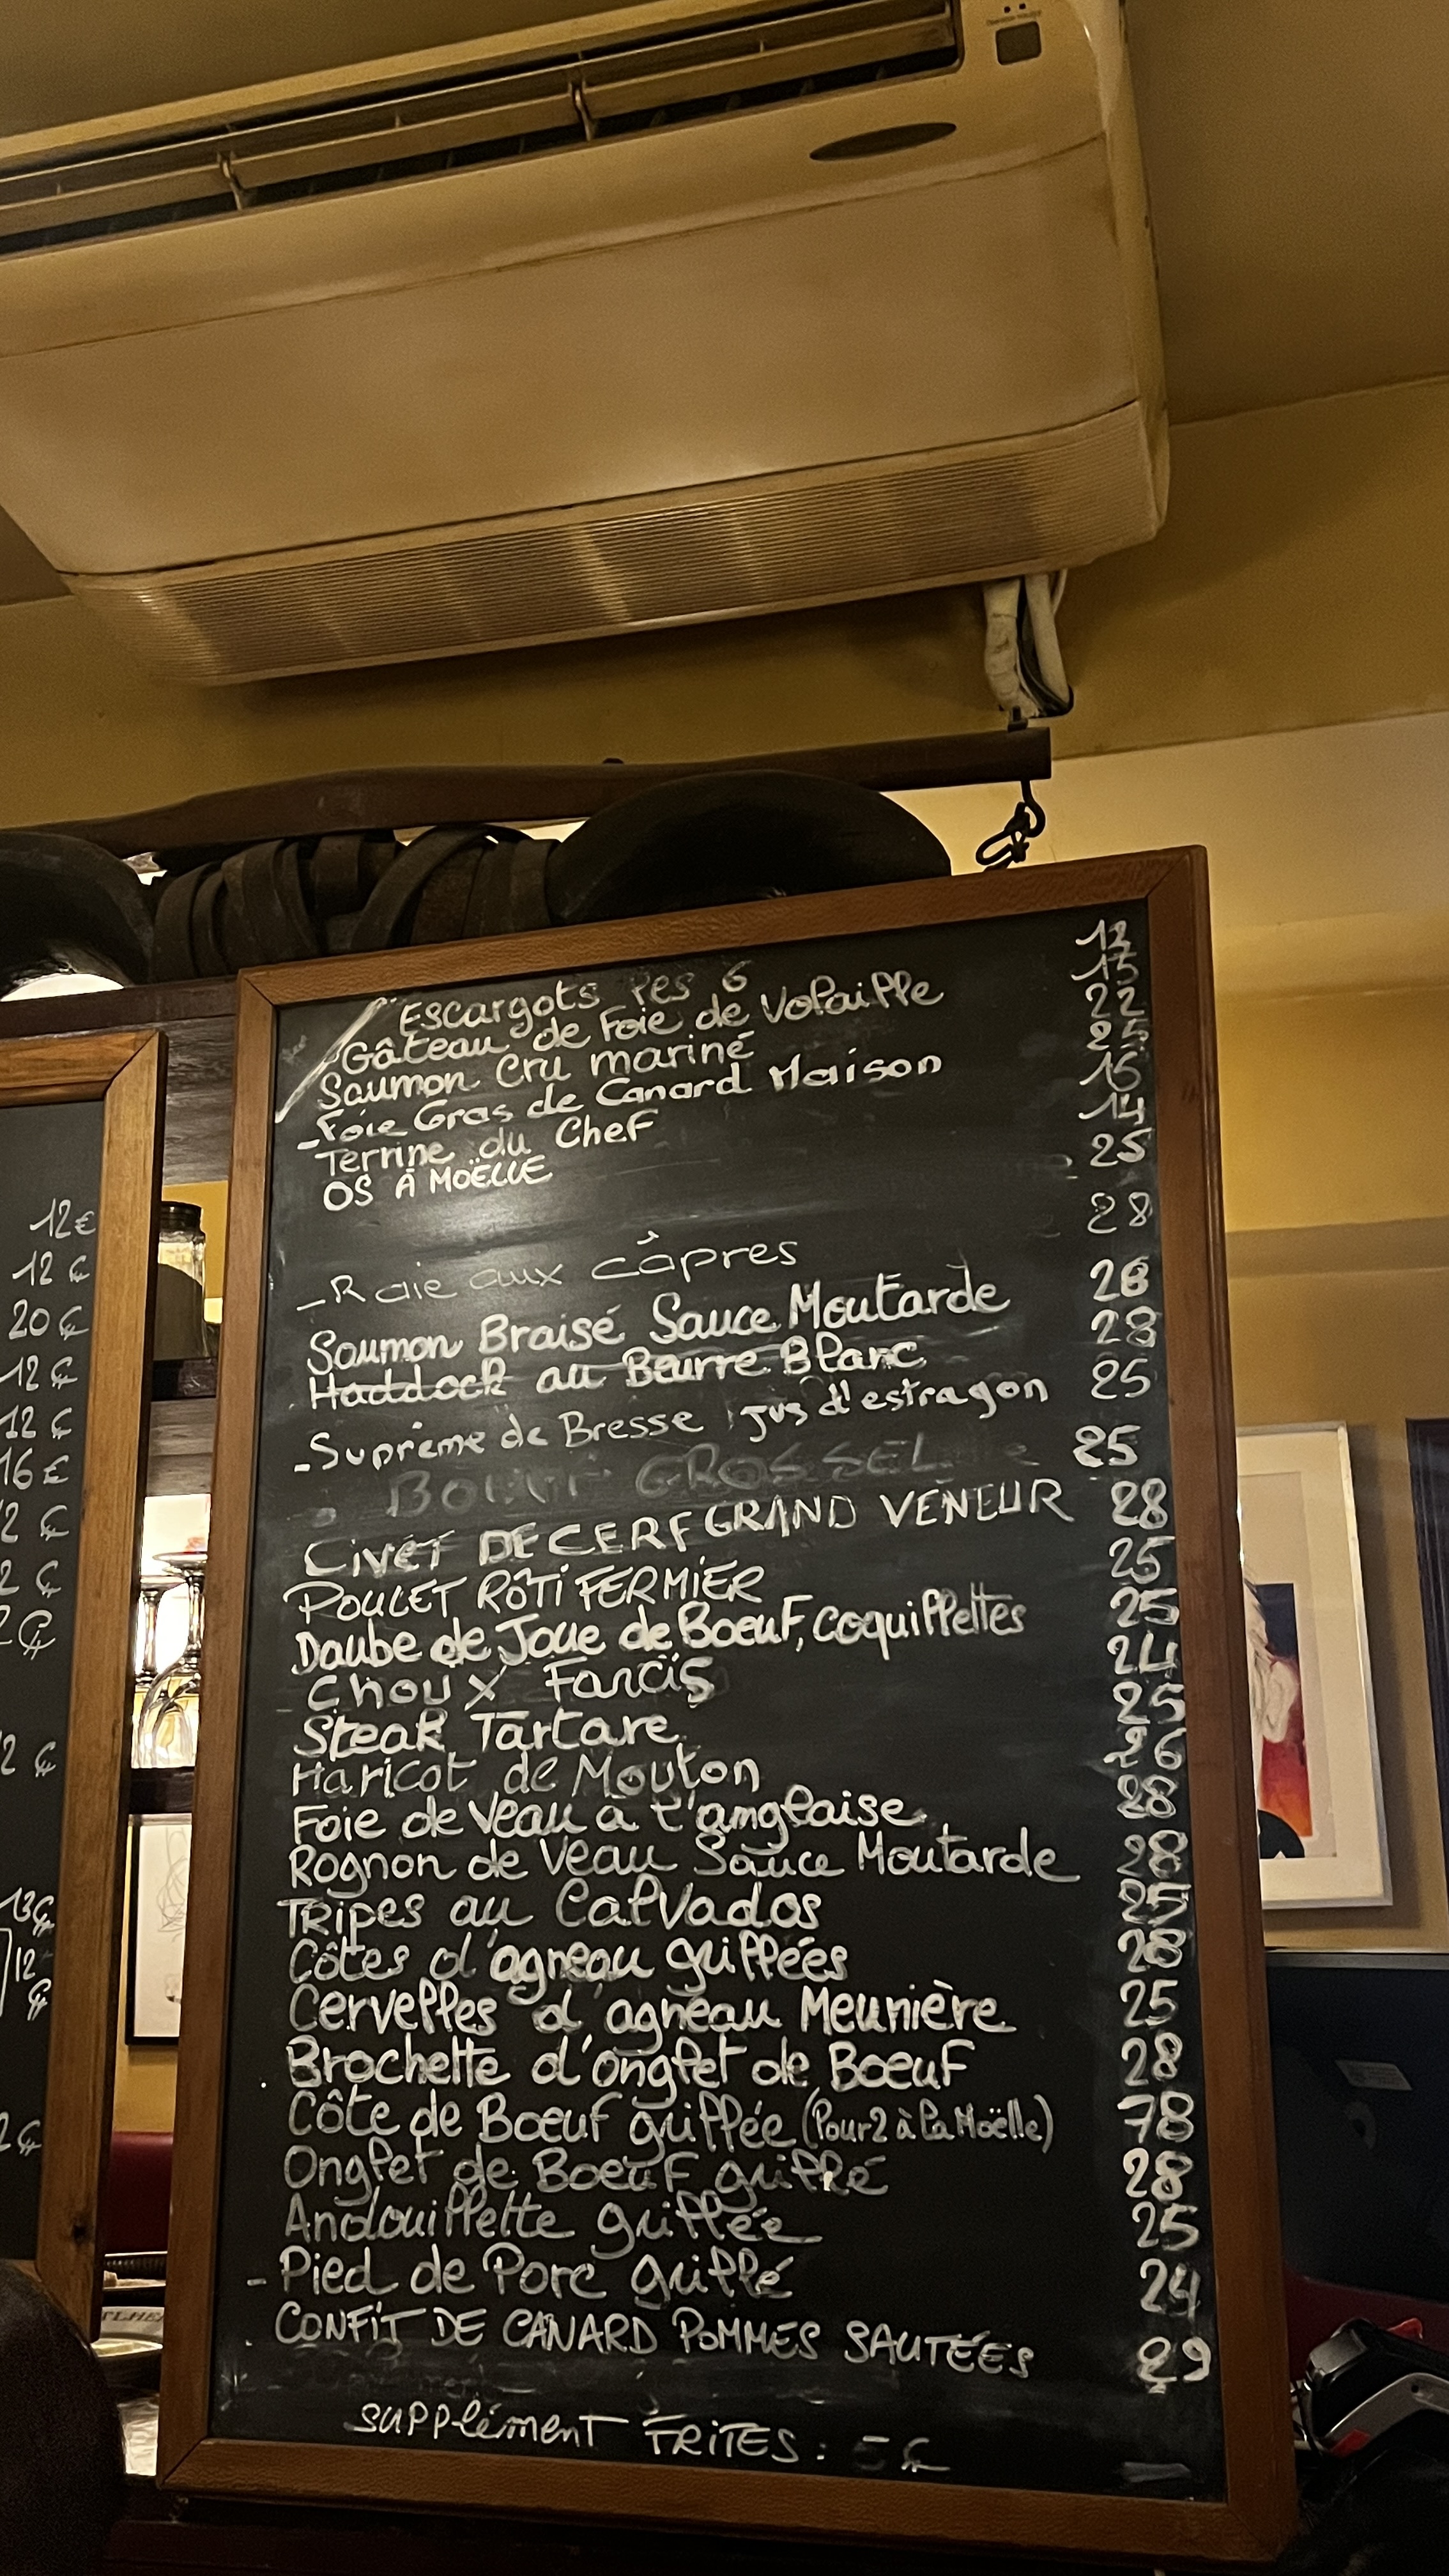 12€
12€
20€
12€
12€
16€
2€
2€
2€
2€
13€
12
€
2€
Escargots les 6
Gâteau de Foie de Volaille
Saumon Cru mariné 22
- Foie Gras de Canard Maison 25
Terrine du Chef
OS À MOËLLE 14
25
- Raie aux câpres 28
Saumon Braisé Sauce Moutarde 26
Haddock au Beurre Blanc 28
- Suprême de Bresse jus d'estragon 25
BOEUF GROS SEL 25
CiVET DE CERF GRAND VENEUR 28
POULET RÔTi FERMiER 25
Daube de Joue de Boeuf, coquillettes 25
Choux Farcis 24
Steak Tartare 25
Haricot de Mouton 26
Foie de Veau à l'anglaise 28
Rognon de Veau Sauce Moutarde 28
Tripes au Calvados 25
Côtes d'agneau grillées 28
Cervelles d'agneau Meunière 25
. Brochette d'onglet de Boeuf 28
Côte de Boeuf grillée (Pour 2 à la Moëlle) 78
Onglet de Boeuf grillé 28
Andouillette grillée 25
- Pied de Porc grillé 24
. CONFiT DE CANARD POMMES SAUTÉES 29
supplément FRiTES : 5€